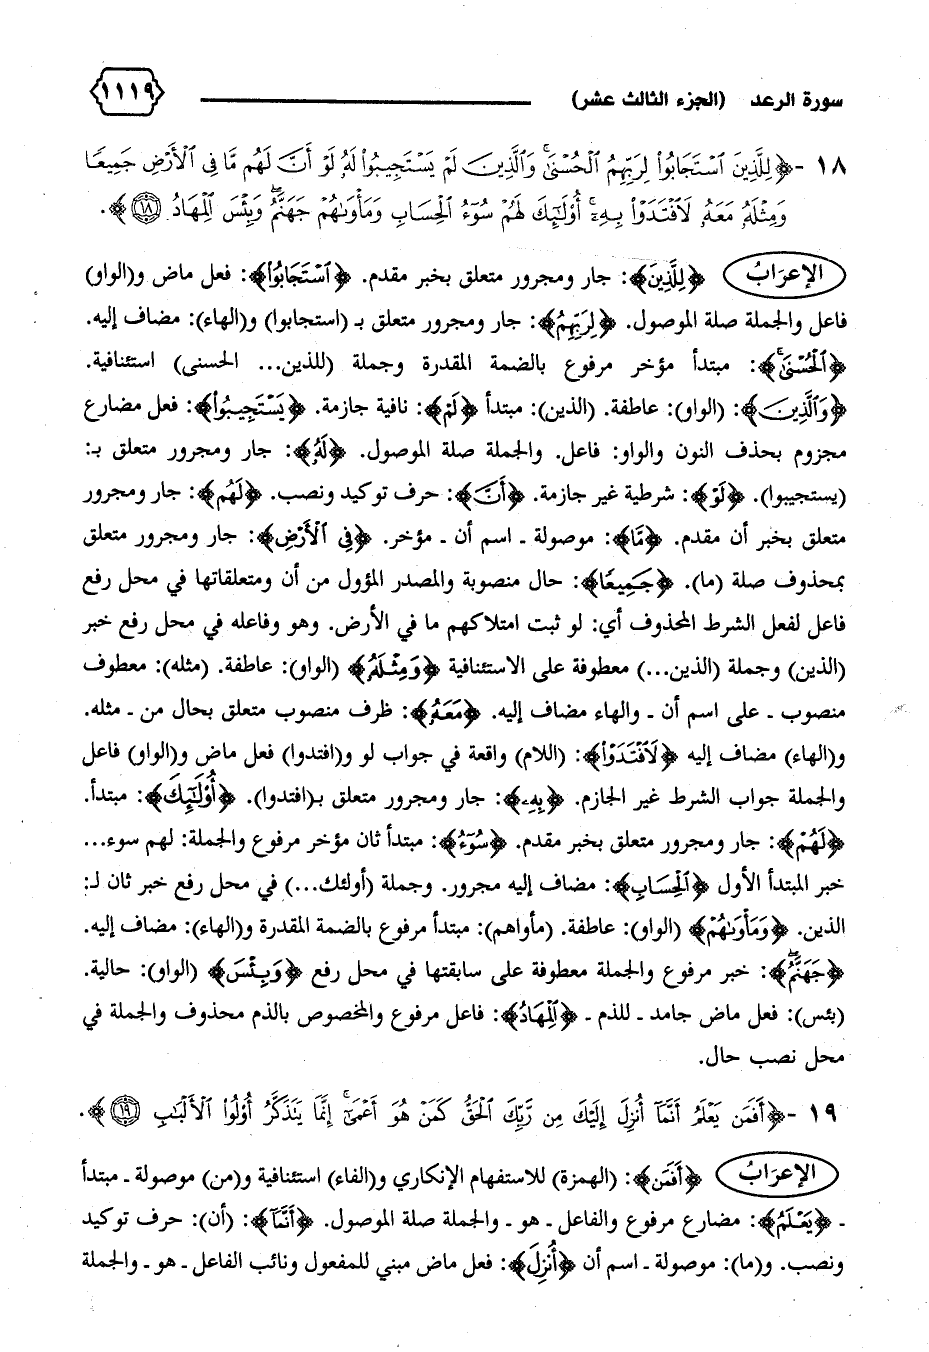 سورة الرعد (الجزء الثالث عشر) ١١١٩
١٨ - ﴿لِلَّذِينَ ٱسْتَجَابُوا۟ لِرَبِّهِمُ ٱلْحُسْنَىٰ ۚ وَٱلَّذِينَ لَمْ يَسْتَجِيبُوا۟ لَهُۥ لَوْ أَنَّ لَهُم مَّا فِى ٱلْأَرْضِ جَمِيعًا
وَمِثْلَهُۥ مَعَهُۥ لَٱفْتَدَوْا۟ بِهِۦٓ ۚ أُو۟لَـٰٓئِكَ لَهُمْ سُوٓءُ ٱلْحِسَابِ وَمَأْوَىٰهُمْ جَهَنَّمُ ۖ وَبِئْسَ ٱلْمِهَادُ ١٨﴾.
الإعرَابُ ﴿لِلَّذِينَ﴾: جار ومجرور متعلق بخبر مقدم. ﴿ٱسْتَجَابُوا۟﴾: فعل ماض و(الواو)
فاعل والجملة صلة الموصول. ﴿لِرَبِّهِمُ﴾: جار ومجرور متعلق بـ (استجابوا) و(الهاء): مضاف إليه.
﴿ٱلْحُسْنَىٰ ۚ﴾: مبتدأ مؤخر مرفوع بالضمة المقدرة وجملة (للذين... الحسنى) استئنافية.
﴿وَٱلَّذِينَ﴾: (الواو): عاطفة. (الذين): مبتدأ ﴿لَمْ﴾: نافية جازمة. ﴿يَسْتَجِيبُوا۟﴾: فعل مضارع
مجزوم بحذف النون والواو: فاعل. والجملة صلة الموصول. ﴿لَهُۥ﴾: جار ومجرور متعلق بـ:
(يستجيبوا). ﴿لَوْ﴾: شرطية غير جازمة. ﴿أَنَّ﴾: حرف توكيد ونصب. ﴿لَهُم﴾: جار ومجرور
متعلق بخبر أن مقدم. ﴿مَّا﴾: موصولة ـ اسم أن ـ مؤخر. ﴿فِى ٱلْأَرْضِ﴾: جار ومجرور متعلق
بمحذوف صلة (ما). ﴿جَمِيعًا﴾: حال منصوبة والمصدر المؤول من أن ومتعلقاتها في محل رفع
فاعل لفعل الشرط المحذوف أي: لو ثبت امتلاكهم ما في الأرض. وهو وفاعله في محل رفع خبر
(الذين) وجملة (الذين...) معطوفة على الاستئنافية ﴿وَمِثْلَهُۥ﴾ (الواو): عاطفة. (مثله): معطوف
منصوب ـ على اسم أن ـ والهاء مضاف إليه. ﴿مَعَهُۥ﴾: ظرف منصوب متعلق بحال من ـ مثله.
و(الهاء) مضاف إليه ﴿لَٱفْتَدَوْا۟﴾: (اللام) واقعة في جواب لو و(افتدوا) فعل ماض و(الواو) فاعل
والجملة جواب الشرط غير الجازم. ﴿بِهِۦ﴾: جار ومجرور متعلق بـ(افتدوا). ﴿أُو۟لَـٰٓئِكَ﴾: مبتدأ.
﴿لَهُمْ﴾: جار ومجرور متعلق بخبر مقدم. ﴿سُوٓءُ﴾: مبتدأ ثان مؤخر مرفوع والجملة: لهم سوء...
خبر المبتدأ الأول ﴿ٱلْحِسَابِ﴾: مضاف إليه مجرور. وجملة (أولئك...) في محل رفع خبر ثان لـ:
الذين. ﴿وَمَأْوَىٰهُمْ﴾ (الواو): عاطفة. (مأواهم): مبتدأ مرفوع بالضمة المقدرة و(الهاء): مضاف إليه.
﴿جَهَنَّمُ ۖ﴾: خبر مرفوع والجملة معطوفة على سابقتها في محل رفع ﴿وَبِئْسَ﴾ (الواو): حالية.
(بئس): فعل ماض جامد ـ للذم ـ ﴿ٱلْمِهَادُ﴾: فاعل مرفوع والمخصوص بالذم محذوف والجملة في
محل نصب حال.
١٩ - ﴿أَفَمَن يَعْلَمُ أَنَّمَآ أُنزِلَ إِلَيْكَ مِن رَّبِّكَ ٱلْحَقُّ كَمَنْ هُوَ أَعْمَىٰٓ ۚ إِنَّمَا يَتَذَكَّرُ أُو۟لُوا۟ ٱلْأَلْبَـٰبِ ١٩﴾.
الإعرَابُ ﴿أَفَمَن﴾: (الهمزة) للاستفهام الإنكاري و(الفاء) استئنافية و(من) موصولة ـ مبتدأ
ـ ﴿يَعْلَمُ﴾: مضارع مرفوع والفاعل ـ هو ـ والجملة صلة الموصول. ﴿أَنَّمَآ﴾: (أن): حرف توكيد
ونصب. و(ما): موصولة ـ اسم أن ﴿أُنزِلَ﴾: فعل ماض مبني للمفعول ونائب الفاعل ـ هو ـ والجملة